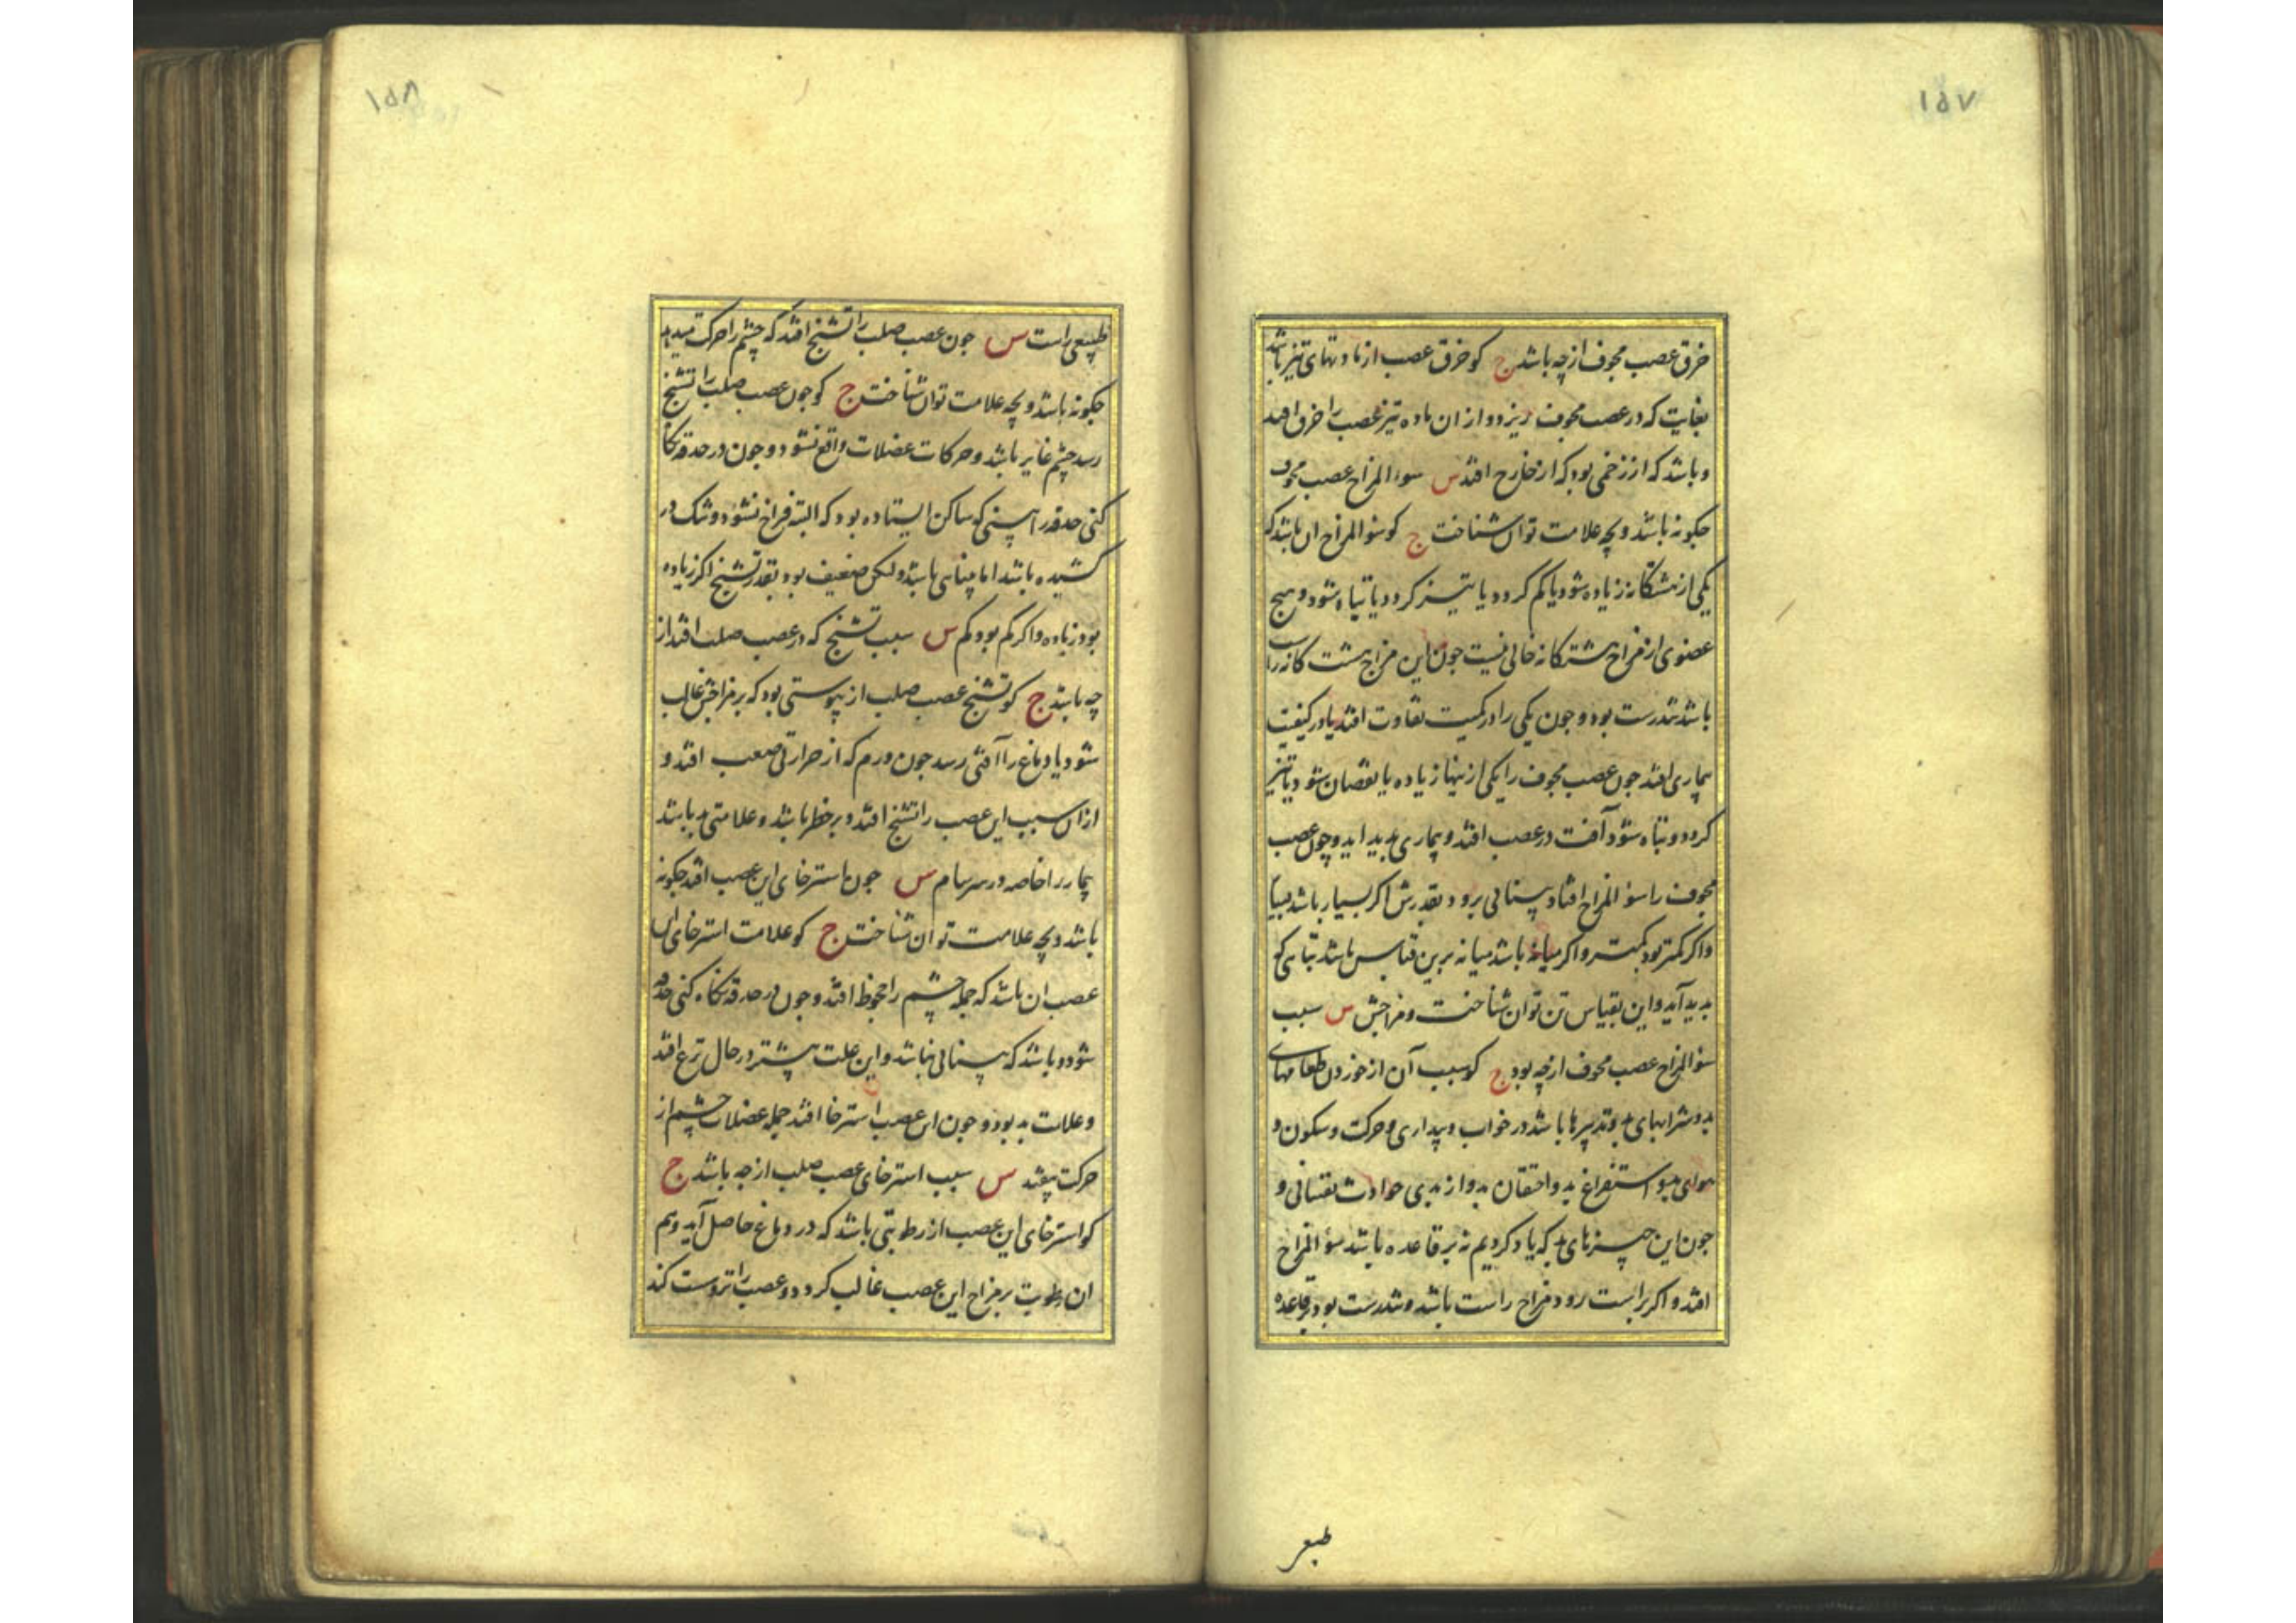 ۱۵۷
خرق عصب مجوف از چه باشد ج کو خرق عصب از مادتهای تیز باشد
بغایت که در عصب مجوف ریزد و از ان ماده تیز عصب را خرق افتد
و باشد که از زخمی بود که از خارج افتد س سوء المزاج عصب مجوف
جکونه باشد و بچه علامت توان شناخت ج کو سوء المزاج ان باشد که
یکی از هشتکانه زیاده شود یا کم کردد یا تیز کردد یا تباه شود و هیج
عضوی از مزاج هشتکانه خالی نیست جون این مزاج هشت کانه راست
باشد تندرست بود و جون یکی را در کمیت تفاوت افتد یا در کیفیت
بیماری افتد جون عصب مجوف را یکی از ینها زیاده یا نقصان شود یا تیز
کردد و تباه شود آفت در عصب افتد و بیماری بدید اید و چون عصب
مجوف را سوء المزاج افتاد بینائی برود بقدرش اکر بسیار باشد
واکر کمتر بود کمتر و اکر میانه باشد میانه برین قیاس باشد تباهی که
بدید آید و این بقیاس تن توان شناخت و مزاجش س سبب
سوء المزاج عصب مجوف از چه بود ج کو سبب آن از خوردن طعامهای
بد و شرابهای بد و تدبیرها باشد در خواب و بیداری و حرکت و سکون و
هوای بد و استفراغ بد و احتقان بد و از بدی حوادث نفسانی و
جون این چیزهای بد که یاد کردیم نه بر قاعده باشد سوء المزاج
افتد و اکر براست رود مزاج راست باشد و تندرست بود بر قاعده
طبعی
۱۵۸
طبیعی راست س جون عصب صلب را تشنج افتد که چشم را حرکت میدهد
جکونه باشد و بچه علامت توان شناخت ج کو جون عصب صلب را تشنج
رسد چشم غایر باشد و حرکات عضلات واقع نشود و جون در حدقه نکاه
کنی حدقه را بینی که ساکن ایستاده بود که البته فراخ نشود و شک در
کشیده باشد اما بینایی باشد ولکن ضعیف بود بقدر تشنج اکر زیاده
بود زیاده و اکر کم بود کم س سبب تشنج که در عصب صلب افتد از
چه باشد ج کو تشنج عصب صلب از یبوستی بود که بر مزاجش غالب
شود یا دماغ را آفتی رسد جون ورم که از حرارتی صعب افتد و
ازان سبب این عصب را تشنج افتد و بر خطر باشد و علامتی بد باشد
بیمار را خاصه در سرسام س جون استرخای این عصب افتد جکونه
باشد و بچه علامت توان شناخت ج کو علامت استرخای این
عصب ان باشد که جمله چشم را جحوظ افتد و جون در حدقه نکاه کنی
شود و باشد که بینائی نباشد و این علت بیشتر در حال نزع افتد
و علامت بد بود و جون این عصب استرخا افتد جمله عضلات چشم از
حرکت بیفتد س سبب استرخای عصب صلب از چه باشد ج
کو استرخای این عصب از رطوبتی باشد که در دماغ حاصل آید و هم
ان رطوبت بر مزاج این عصب غالب کردد و عصب را تر و سست کند